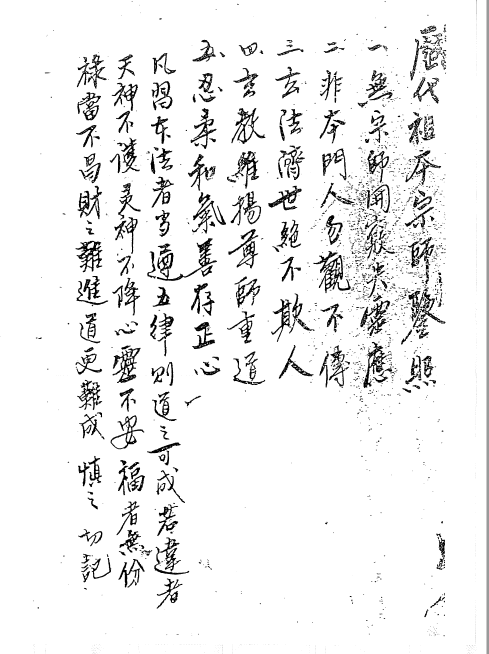 歷代祖本宗師鑒照
一、無宗師開竅失靈應
二、非本門人勿觀不傳
三、玄法濟世絕不欺人
四、玄教維揚尊師重道
五、忍柔和氣善存正心
凡習本法者当遵五律则道之可成若違者
天神不護灵神不降心靈不安福者無份
祿當不昌財之難進道更難成 慎之切記